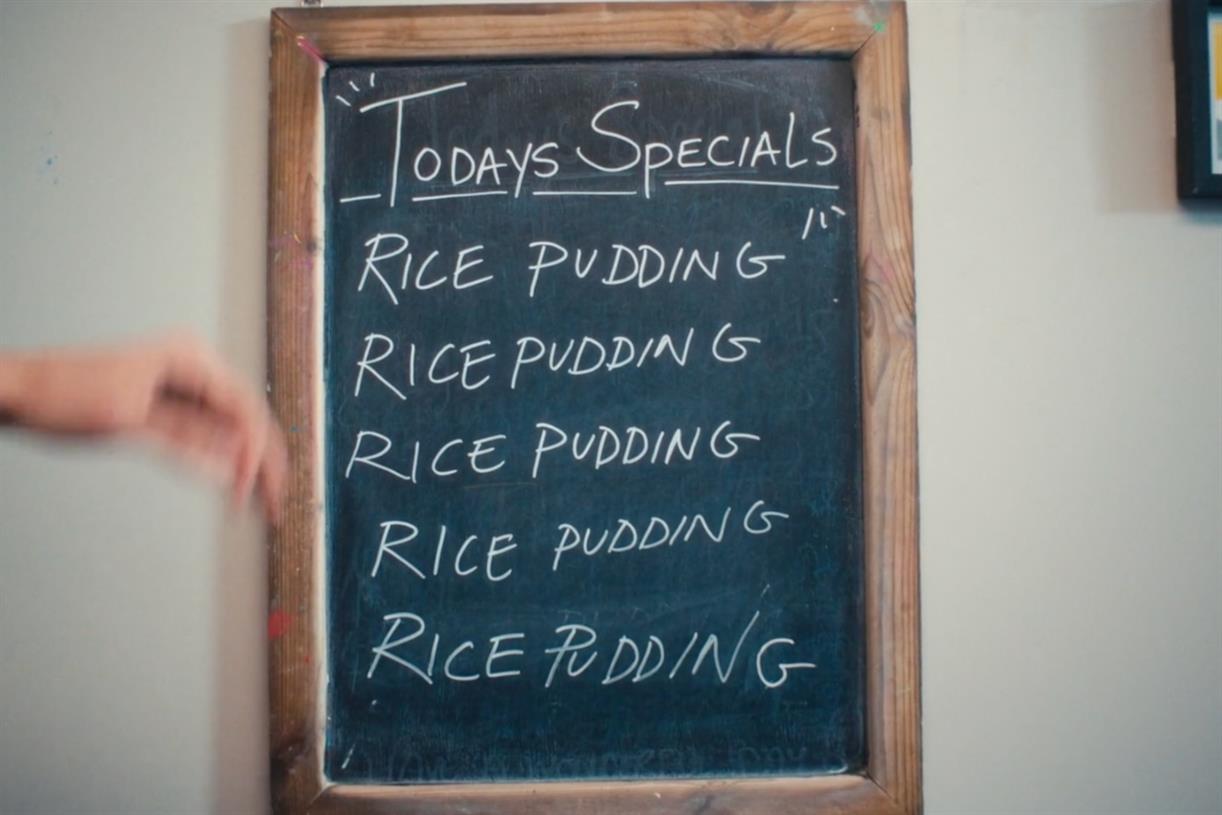 TODAYS SPECIALS
RICE PUDDING
RICE PUDDING
RICE PUDDING
RICE PUDDING
RICE PUDDING